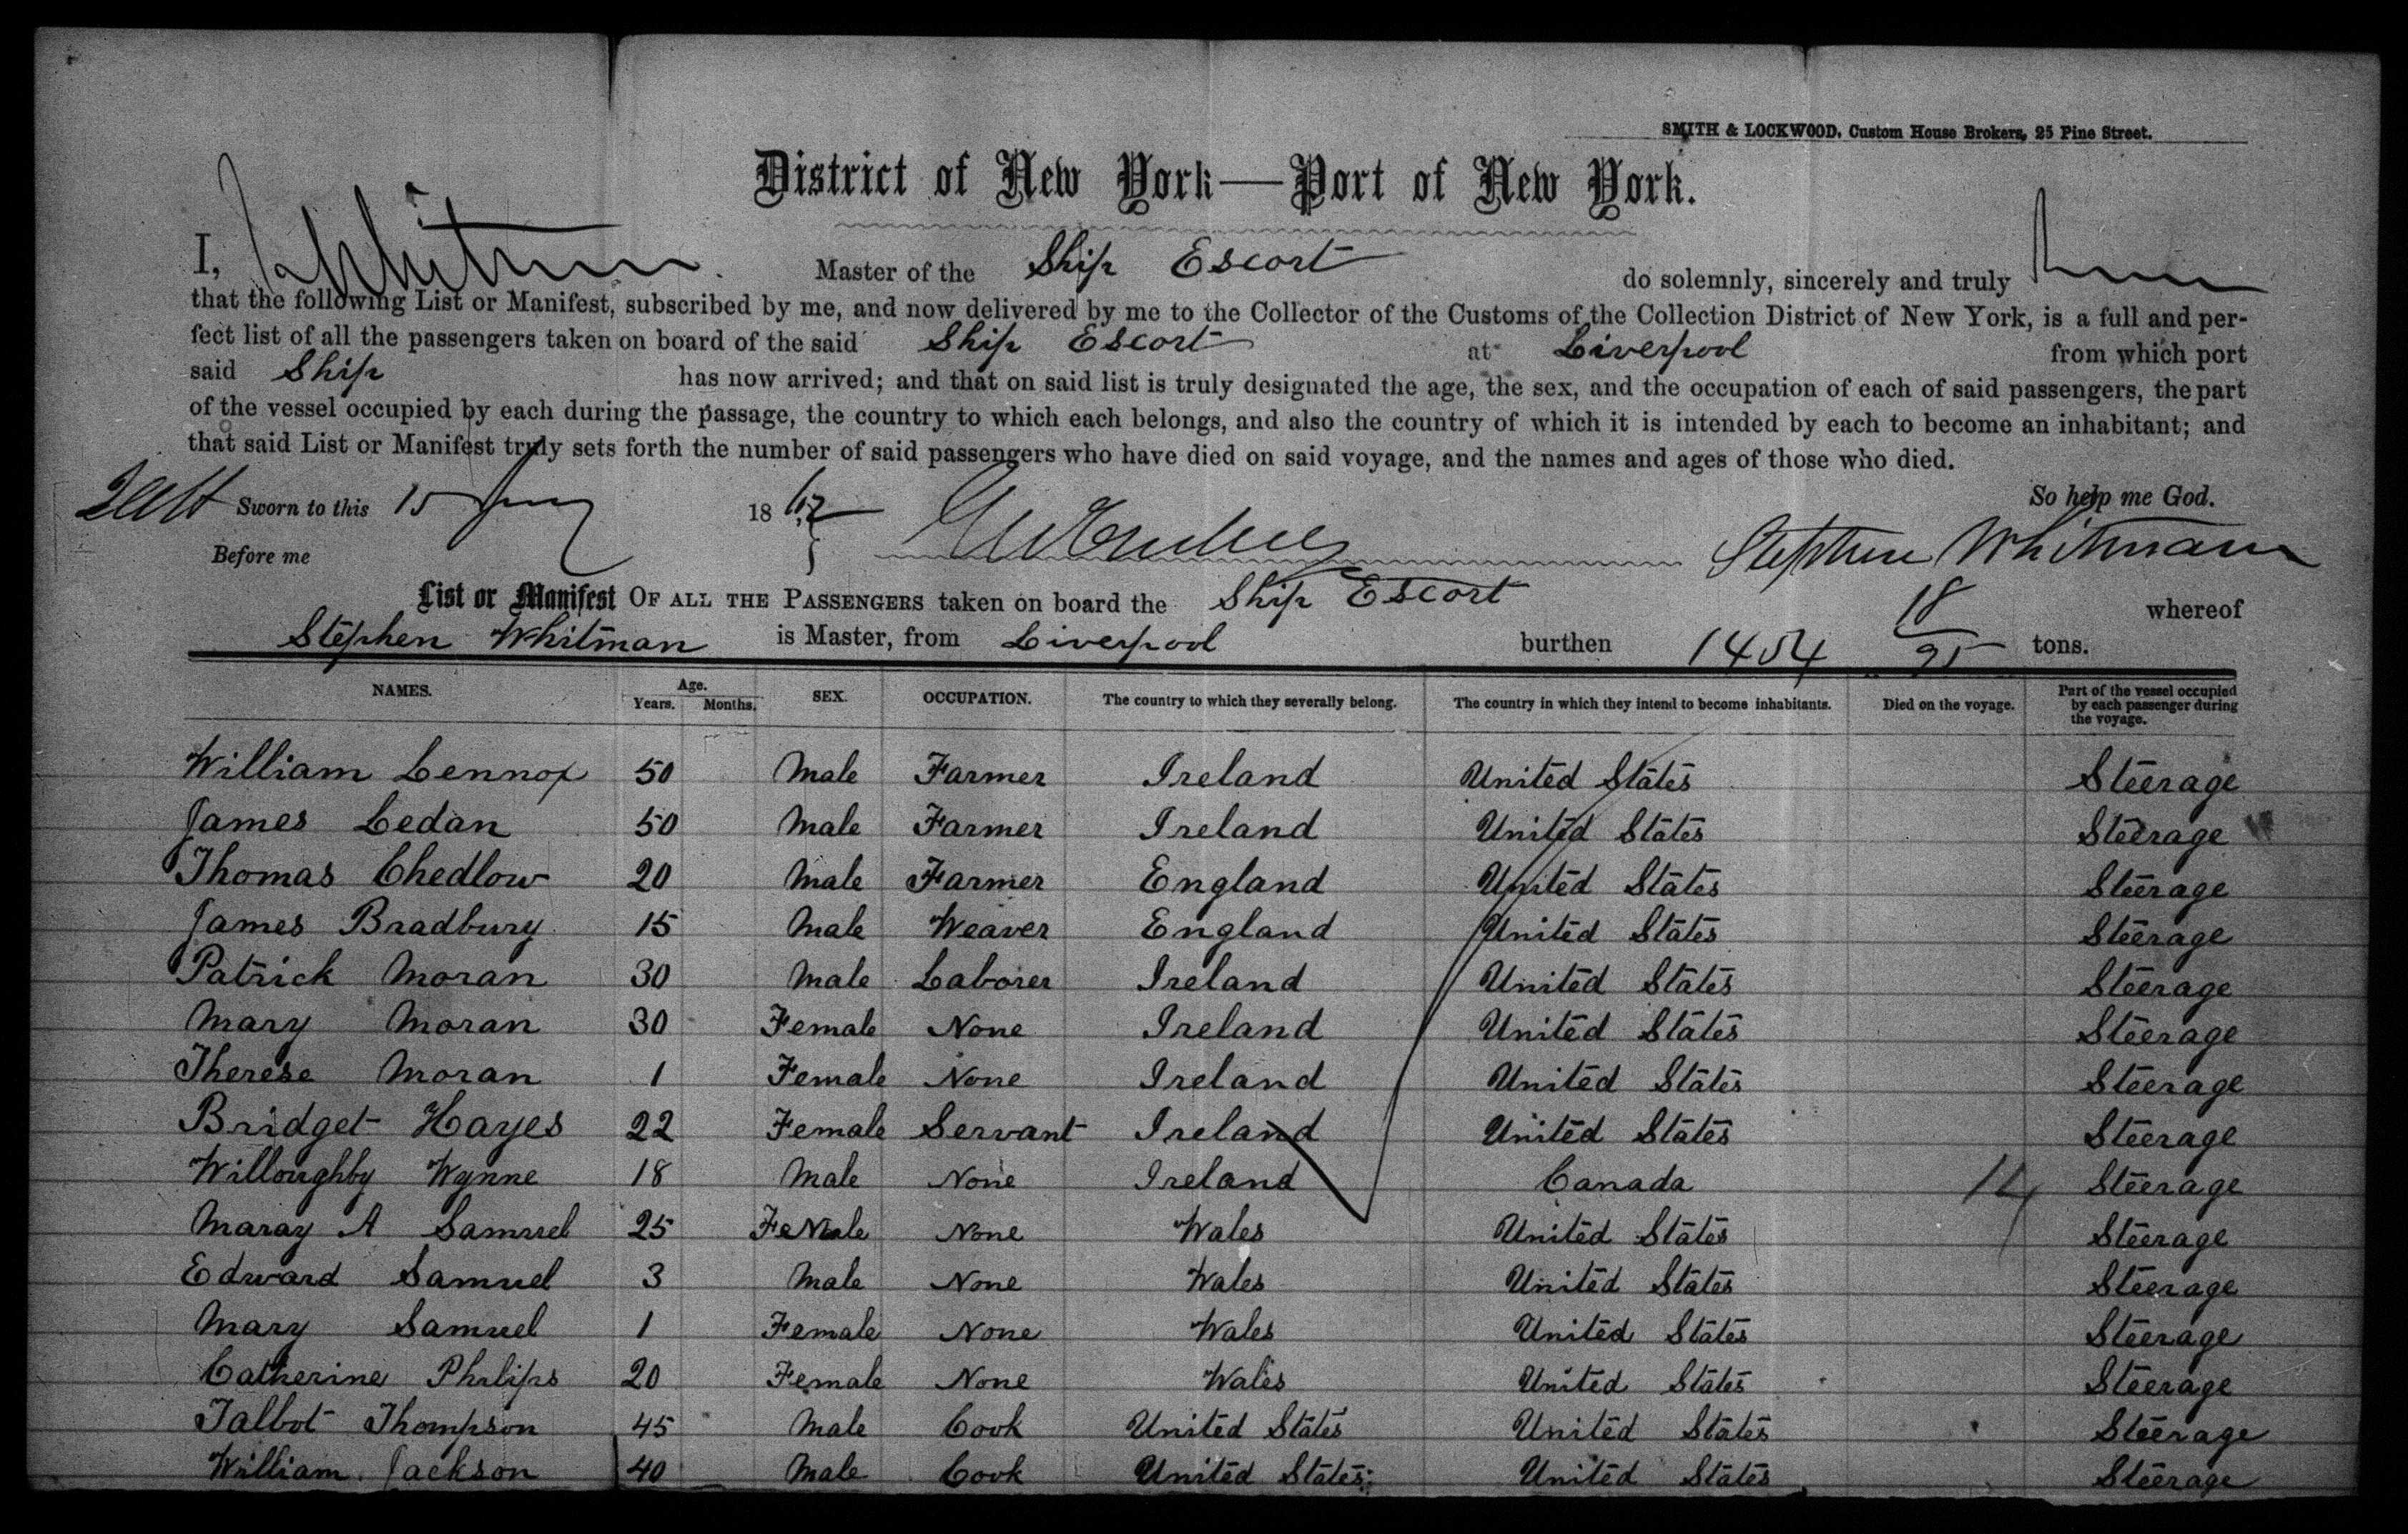 SMITH & LOCKWOOD, Custom House Brokers, 25 Pine Street.
District of New York—Port of New York.
I, Whitman Master of the Ship Escort do solemnly, sincerely and truly
that the following List or Manifest, subscribed by me, and now delivered by me to the Collector of the Customs of the Collection District of New York, is a full and per-
fect list of all the passengers taken on board of the said Ship Escort at Liverpool from which port
said Ship has now arrived; and that on said list is truly designated the age, the sex, and the occupation of each of said passengers, the part
of the vessel occupied by each during the passage, the country to which each belongs, and also the country of which it is intended by each to become an inhabitant; and
that said List or Manifest truly sets forth the number of said passengers who have died on said voyage, and the names and ages of those who died.
So help me God.
Sworn to this 15 1862
Before me Stephen Whitman
List or Manifest OF ALL THE PASSENGERS taken on board the Ship Escort whereof
Stephen Whitman is Master, from Liverpool burthen 1454 18/95 tons.
NAMES. Age. Years. Months. SEX. OCCUPATION. The country to which they severally belong. The country in which they intend to become inhabitants. Died on the voyage. Part of the vessel occupied by each passenger during the voyage.
William Lennox 50 Male Farmer Ireland United States Steerage
James Ledan 50 Male Farmer Ireland United States Steerage
Thomas Chedlow 20 Male Farmer England United States Steerage
James Bradbury 15 Male Weaver England United States Steerage
Patrick Moran 30 Male Laborer Ireland United States Steerage
Mary Moran 30 Female None Ireland United States Steerage
Therese Moran 1 Female None Ireland United States Steerage
Bridget Hayes 22 Female Servant Ireland United States Steerage
Willoughby Wynne 18 Male None Ireland Canada 14 Steerage
Maray A Samuel 25 Female None Wales United States Steerage
Edward Samuel 3 Male None Wales United States Steerage
Mary Samuel 1 Female None Wales United States Steerage
Catherine Philips 20 Female None Wales United States Steerage
Talbot Thompson 45 Male Cook United States United States Steerage
William Jackson 40 Male Cook United States United States Steerage